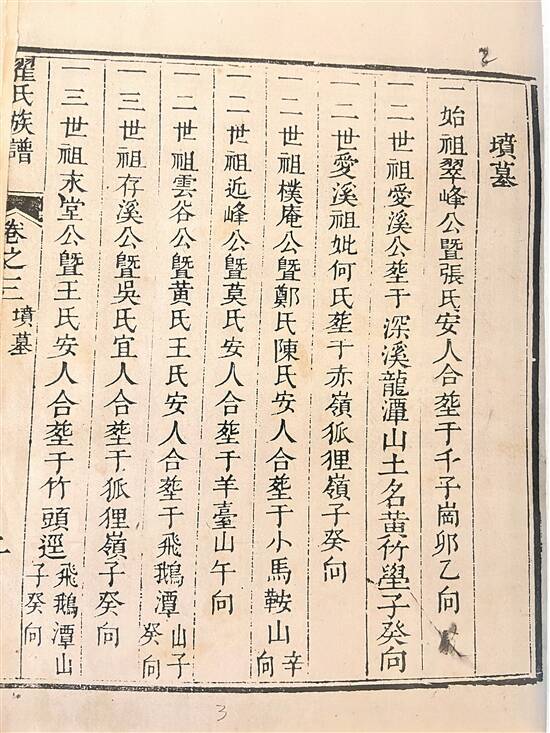 墳墓
一始祖翠峰公暨張氏安人合塟于千子崗卯乙向
一二世祖愛溪公塟于深溪龍潭山土名黃竹壆子癸向
一二世愛溪祖妣何氏塟于赤嶺狐狸嶺子癸向
一二世祖樸庵公暨鄭氏陳氏安人合塟于小馬鞍山辛向
一二世祖近峰公暨莫氏安人合塟于羊臺山午向
一二世祖雲谷公暨黃氏王氏安人合塟于飛鵝潭山子癸向
一三世祖存溪公暨吳氏宜人合塟于狐狸嶺子癸向
一三世祖末堂公暨王氏安人合塟于竹頭逕飛鵝潭山子癸向
翟氏族譜
卷之三
墳墓
3